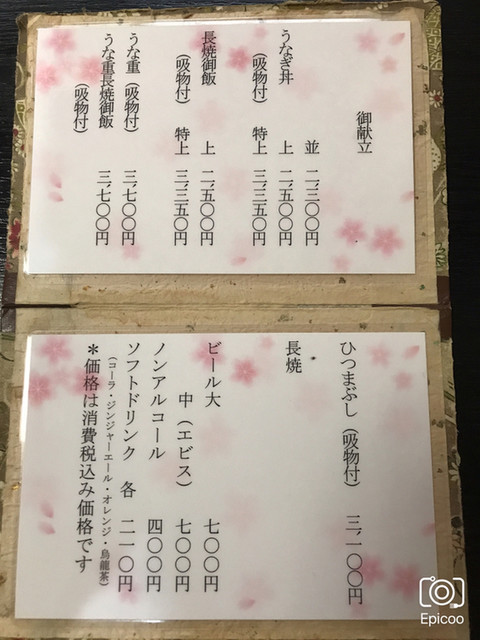 御献立
並 二、三〇〇円
うなぎ丼 上 二、五〇〇円
(吸物付) 特上 三、二五〇円
長焼御飯 上 二、五〇〇円
(吸物付) 特上 三、三五〇円
うな重(吸物付) 三、七〇〇円
うな重長焼御飯 三、七〇〇円
(吸物付)
ひつまぶし(吸物付) 三、一〇〇円
長焼
ビール大 七〇〇円
中(エビス) 七〇〇円
ノンアルコール 四〇〇円
ソフトドリンク 各 二一〇円
(コーラ・ジンジャーエール・オレンジ・烏龍茶)
*価格は消費税込み価格です
Epicoo